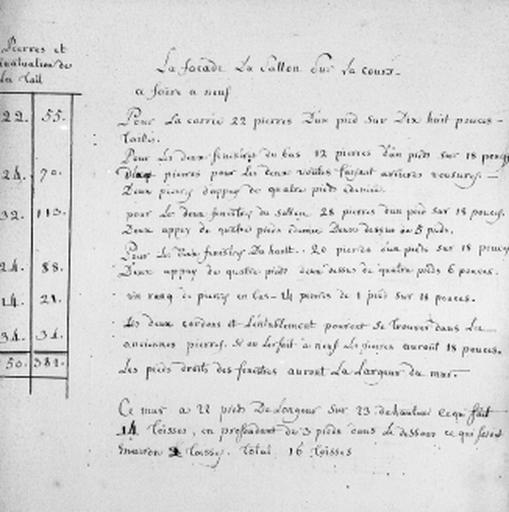 Pierres et
évaluation de
la tail
22. 55.
24. 70.
32. 113.
24. 88.
14. 21.
34. 34.
50. 381.
La facade La Sallon Sur La cours.
a faire a neuf
Pour La carrie 22 pierres D'un pied sur Dix huit pouces -
taillés.
Pour Les deux fenestres du bas 12 pierres D'un pieds sur 18 pouces
pierres pour Les deux voûtes faisant arrieres vousures. -
Deux pierres d'appuy de quatre pieds &demie.
pour Les deux fenestres du sallon 28 pierres d'un pied sur 18 pouces.
Deux appuy de quatre pieds &demie Deux dessus de 5 pieds.
Pour Les Deux fenestres Du hault. 20 pierres d'un pieds sur 18 pouces
Deux appuy de quatre pieds deux dessus de quatre pieds 6 pouces.
un rang de pierres en bas - 14 pierres de 1 pied sur 18 pouces.
Les deux cordons et L'entablement pouront se trouver dans Les
anciennes pierres. Si on Les fait a neuf Les pierres auront 18 pouces.
Les pieds droits des fenêtres auront La Largeur du mur.
Ce mur a 22 pieds De Longeur Sur 23 de hauteur ce qui fait
14 toisses, en profondant de 3 pieds dans le dessous ce qui feroit
environ 2 toisses. Total. 16 toisses